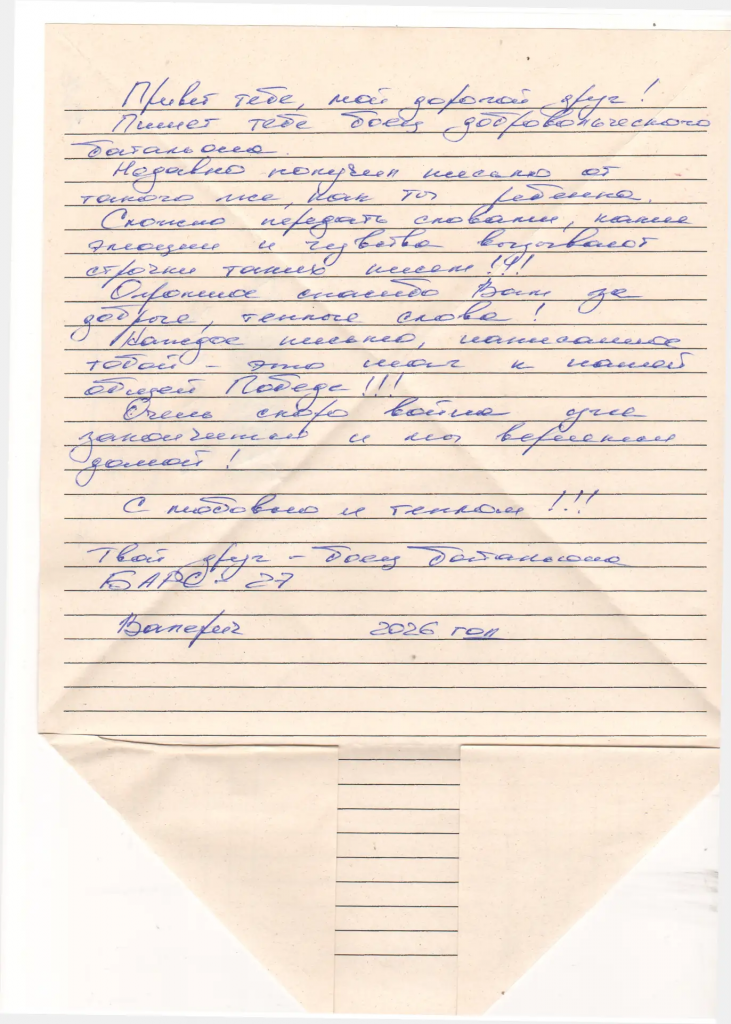 Привет тебе, мой дорогой друг!
Пишет тебе боец добровольческого
батальона.
Недавно получил письмо от
такого же, как ты ребенка.
Сложно передать словами, какие
эмоции и чувства вызывают
строчки таких писем!!!!
Огромное спасибо Вам за
добрые, теплые слова!
Каждое письмо, написанное
тобой – это шаг к нашей
общей Победе!!!
Очень скоро война уже
закончится и мы вернемся
домой!
С любовью и теплом!!!
Твой друг – боец батальона
БАРС - 27
Валерич 2026 год